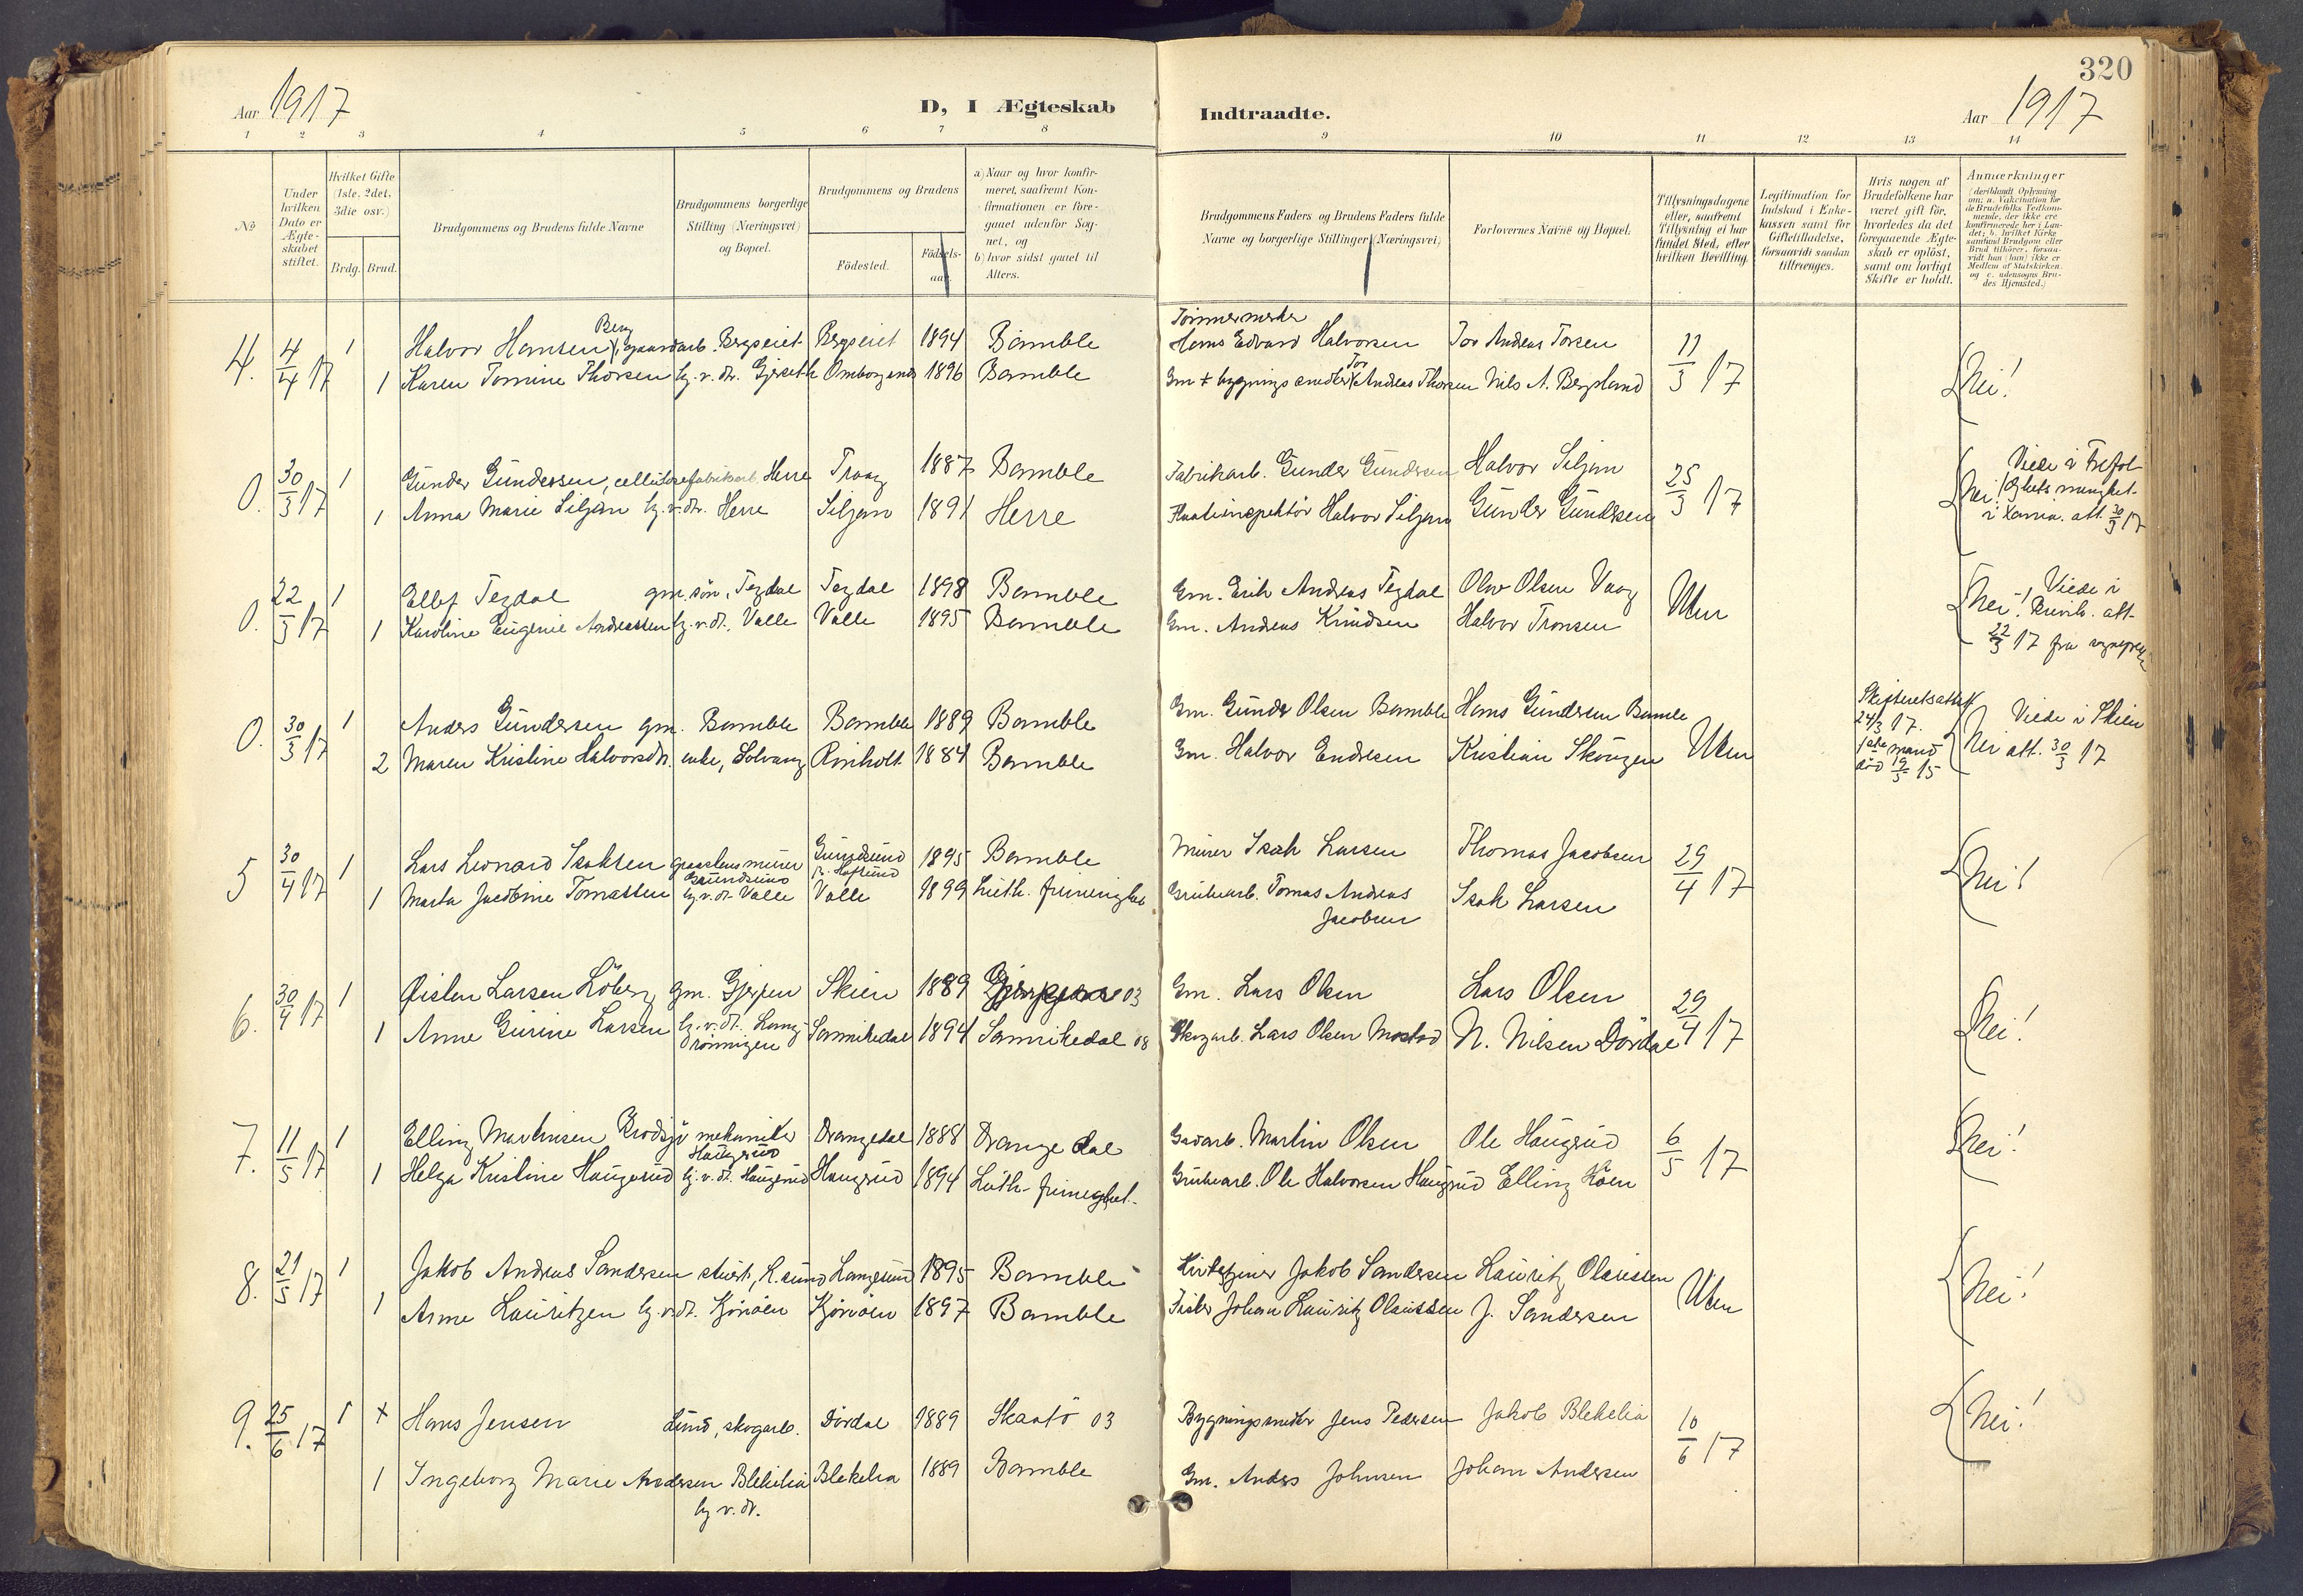 320
Aar 1917
D, I Ægteskab Indtraadte.
Aar 1917
1 2 3 4 5 6 7 8 9 10 11 12 13 14
No
Under hvilken Dato er Ægteskabet stiftet.
Hvilket Gifte (1ste, 2det, 3die osv.)
Brdg. Brud.
Brudgommens og Brudens fulde Navne
Brudgommens borgerlige Stilling (Næringsvei) og Bopæl.
Brudgommens og Brudens
Fødested.
Fødselsaar.
a) Naar og hvor konfirmeret, saafremt Konfirmationen er foregaaet udenfor Sognet, og
b) hvor sidst gaaet til Alters.
Brudgommens Faders og Brudens Faders fulde Navne og borgerlige Stillinger (Næringsvei)
Forlovernes Navne og Bopæl.
Tillysningsdagene eller, saafremt Tillysning ei har fundet Sted, efter hvilken Bevilling.
Legitimation for Indskud i Enkekassen samt for Giftetilladelse, forsaavidt saadan tiltrænges.
Hvis nogen af Brudefolkene har været gift før, hvorledes da det foregaaende Ægteskab er opløst, samt om lovligt Skifte er holdt.
Anmærkninger
(deriblandt Oplysning om: a. Vakcination for de Brudefolks Vedkommende, der ikke ere konfirmerede her i Landet; b. hvilket Kirkesamfund Brudgom eller Brud tilhører, forsaavidt han (hun) ikke er Medlem af Statskirken og c. udensogns Brudes Hjemsted.)
Berg Tømmermerker
4. 4/4 17 1 Halvor Hansen gaardarb. Bergseiet Bergseiet 1894 Bamble Hans Edvard Halvorsen Tor Andreas Torsen 11/3 17 Nei!
1 Karen Tomine Thorsen hj.v.dtr. Gjerseth 1896 Bamble Gm + bygningssnedker Tor Andreas Thorsen Nils A. Bergland
0. 30/3 17 1 Gunder Gundersen, cellulosefabrikarb. Herre Traag 1887 Bamble Fabrikarb. Gunder Gundersen Halvor Siljan 25/3 17 Nei! Viede i
1 Anna Marie Siljan hj.v.dtr. Herre Siljan 1891 Herre Halvor Siljan Gunder Gundersen att. 30/3 17
0. 22/3 17 1 Ellef Tegdal gm. søn, Tegdal Tegdal 1898 Bamble Gm. Erik Andreas Tegdal Olav Olsen Vaag Uten Nei! Viede i
1 Karoline Eugenie Andreassen hj.v.dt., Valle Valle 1895 Bamble Gm. Andreas Knudsen Halvor Tronsen att. 22/3 17 fra
0. 30/3 17 1 Anders Gundersen gm. Bamble Bamble 1889 Bamble Gm. Gunder Olsen Bamble Hans Gundersen Bamle Uten Skifteretsattest 24/3 17. Nei Viede i Skien
2 Maren Kristine Halvorsdtr. enke, Solvang Rinholt 1884 Bamble Gm. Halvor Endresen Kristian Skougen 1ste mand død 19/3 15 att. 30/3 17
5 30/4 17 1 Lars Leonard Isaksen graastensmurer Grundsund 1895 Bamble Murer Isak Larsen Thomas Jacobsen 29/4 17 Nei!
1 Marta Jacobine Tomassen hj.v.dt. Valle Valle 1899 Luth. frimenighet Grubearb. Tomas Andreas Jacobsen Isak Larsen
6. 30/4 17 1 Øisten Larsen Löberg gm. Gjerpen Skien 1889 Gjerpen 03 Gm. Lars Olsen Lars Olsen 29/4 17 Nei!
1 Anne Gurine Larsen hj.v.dt. Langrönningen Sannikedal 1894 Sannikedal 08 Skogarb. Lars Olsen Mostad N. Nilsen Dördal
7. 11/5 17 1 Elling Martinsen Brodsjö mekaniker Haugerud Drangedal 1888 Drangedal Gaardarb. Martin Olsen Ole Haugrud 6/5 17 Nei!
1 Helga Kristine Haugerud hj.v.dt. Haugerud Haugerud 1894 Luth. frimeghet. Grubearb. Ole Halvorsen Haugrud Elling Køen
8. 21/5 17 1 Jakob Andreas Sandersen stuert, L.sund Langesund 1895 Bamble Kirketjener Jakob Sandersen Lauritz Olaussen Uten Nei!
1 Anne Lauritzen hj.v.dt. Kjönöen Kjönöen 1897 Bamble Fisker Johan Lauritz Olaussen J. Sandersen
9. 25/6 17 1 + Hans Jensen Lund, skogarb. Dördal 1889 Skaatö 03 Bygningssnedker Jens Pedersen Jakob Blekelia 10/6 17 Nei!
1 Ingeborg Marie Andersen Blekelia hj.v.dt. Blekelia 1889 Bamble Gm. Anders Johnsen Johan Andersen